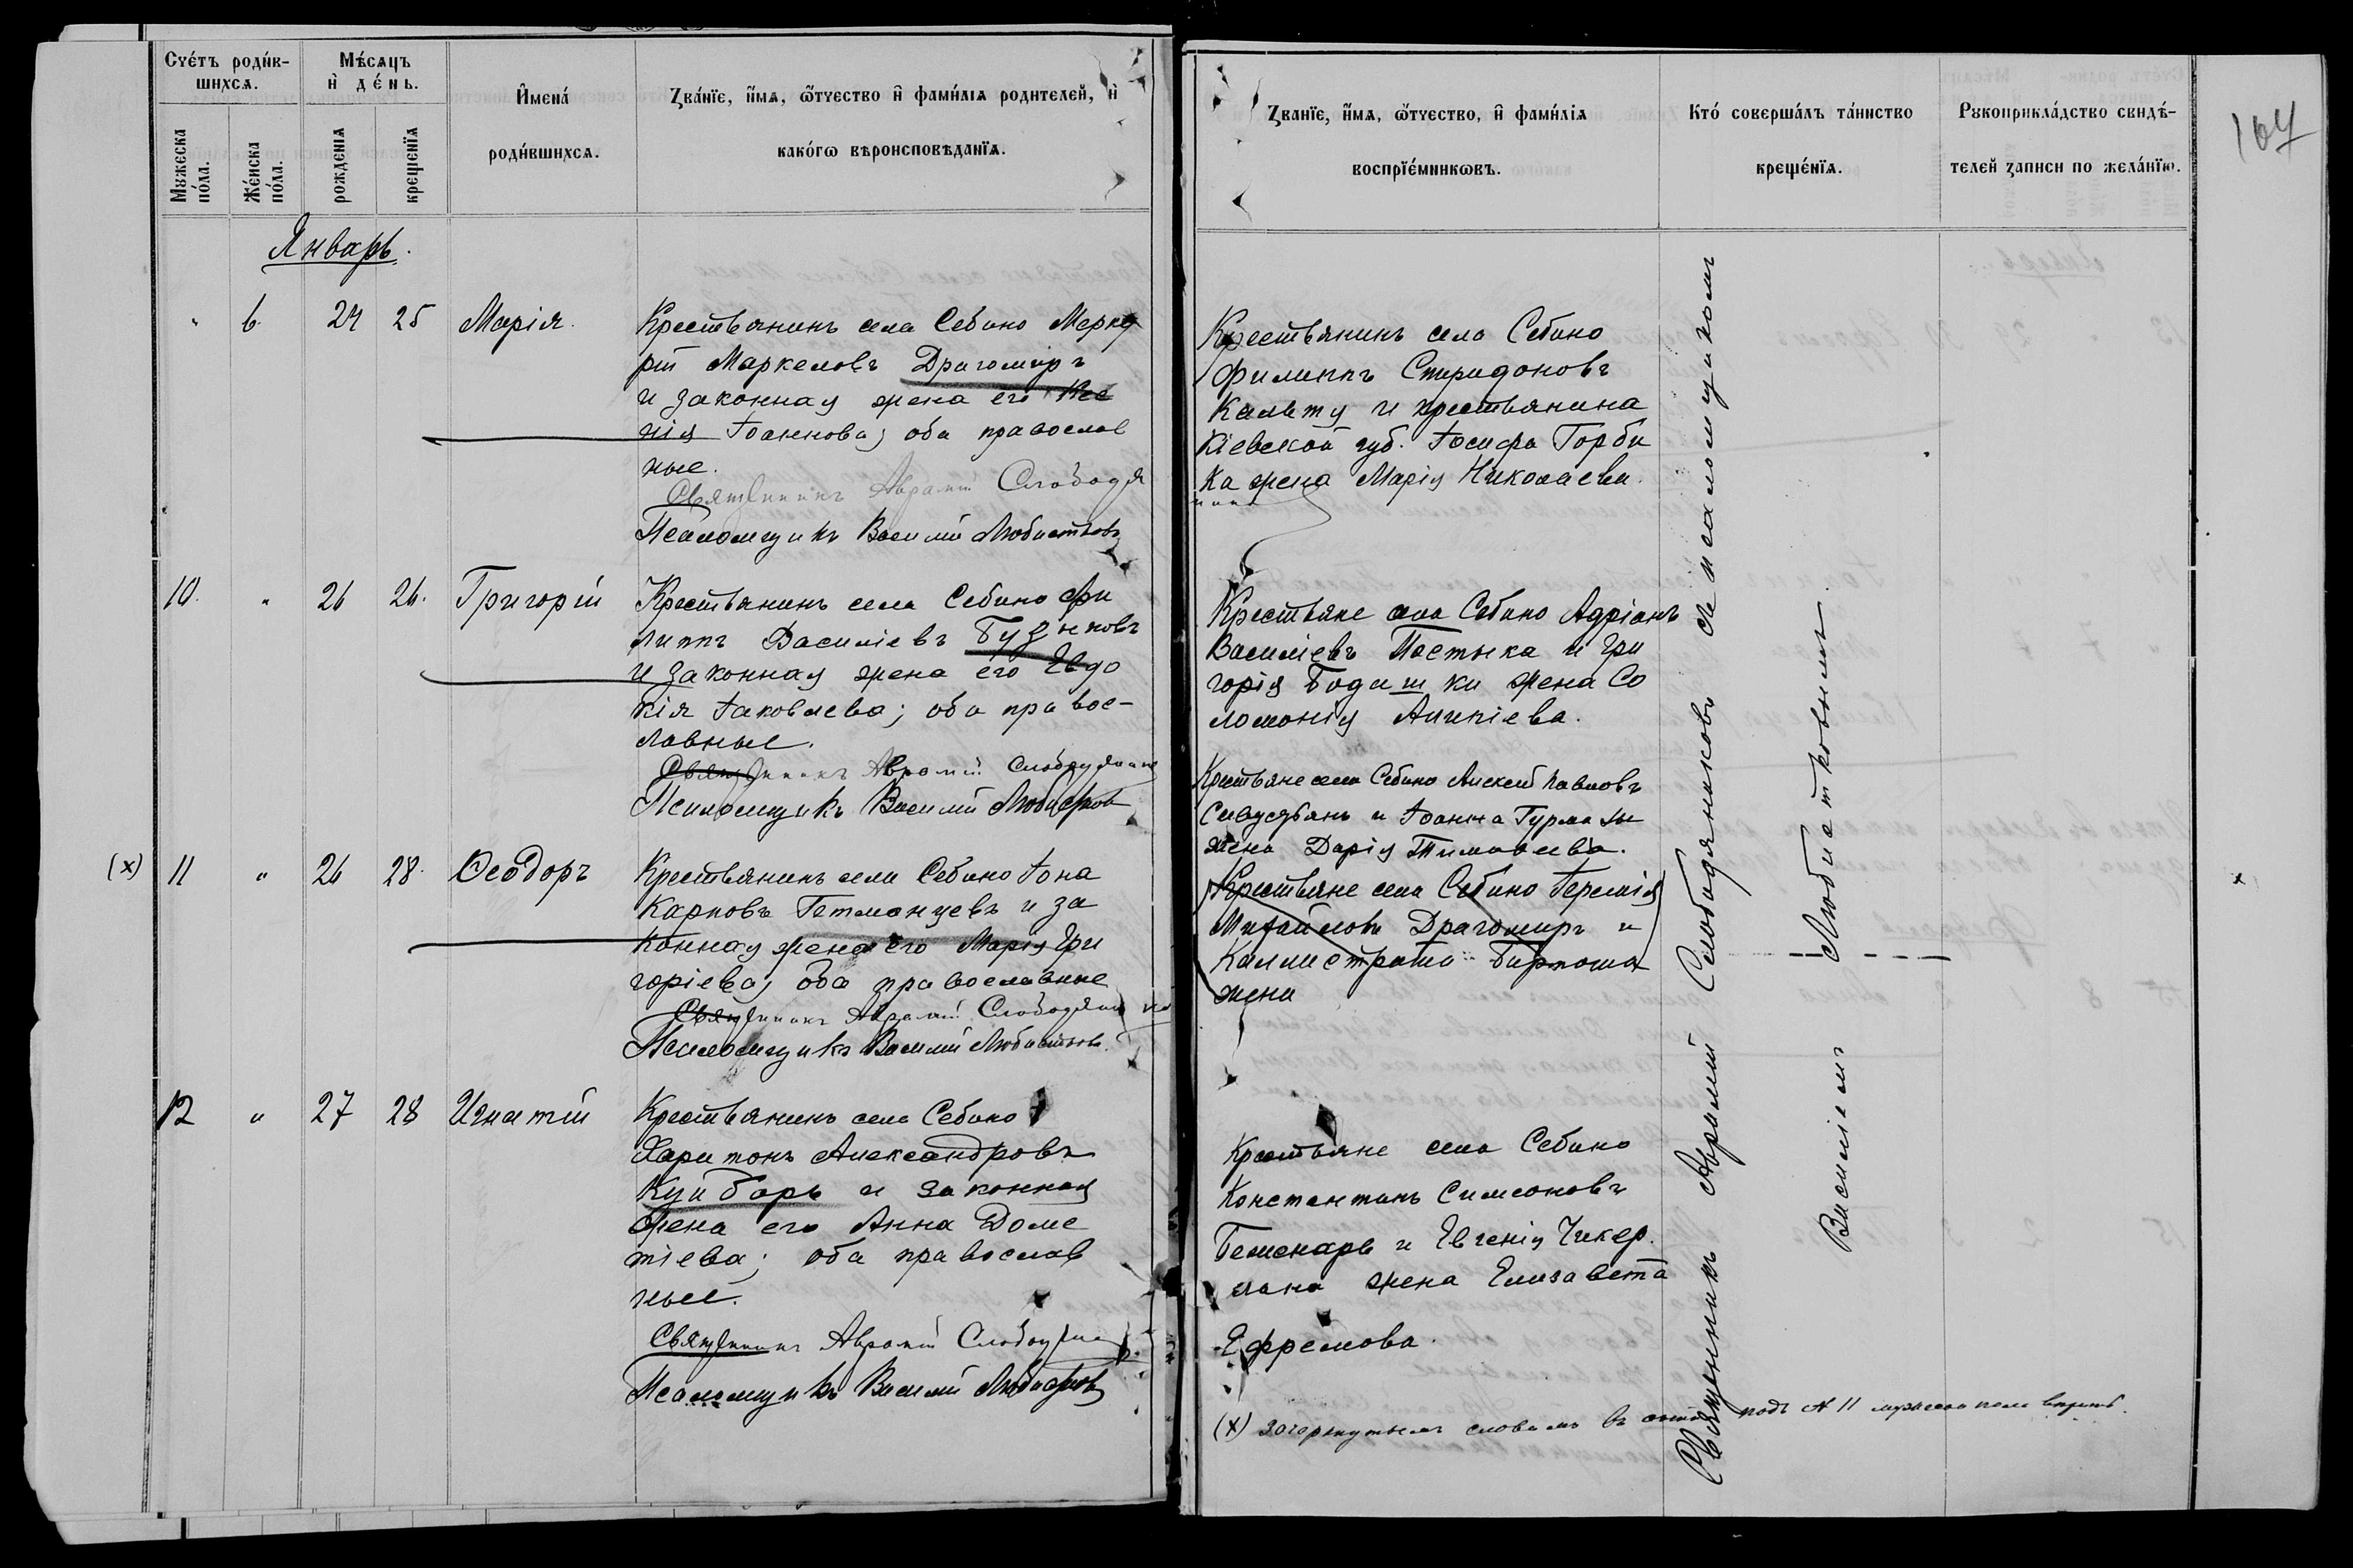 Счетъ родив-
шихся.
Мѣсяцъ
и день.
Мужеска
пола.
Женска
пола.
рожденія
крещенія
Имена
родившихся.
Званіе, имя, отчество и фамилія родителей, и
какого вѣроисповѣданія.
Январь.
" 6. 24 25 Марія.
Крестьянинъ села Себино Мерку
рій Маркеловъ Драгомиръ
и законная жена его Ксе
нія Іоаннова; оба православ
ные.
Священникъ Аврамій Слободя
Псаломщикъ Василій Любистковъ
10. " 26 26. Григорій
Крестьянинъ села Себино Фи
липпъ Василіевъ
и законная жена его Евдо
кія Іаковлева; оба правос-
лавные.
Священникъ Аврамій
Псаломщикъ Василій Любистковъ
(x) 11 " 26 28. Ѳеодоръ
Крестьянинъ села Себино Іона
Карповъ Гетманцевъ и за
конная жена его Марія Гри
горіева; оба православные
Священникъ Аврамій
Псаломщикъ Василій Любистковъ.
12 " 27 28 Игнатій
Крестьянинъ села Себино
Харитонъ Александровъ
Куйбарь и законная
жена его Анна Доме
тіева; оба православ
ные.
Священникъ Аврамій
Псаломщикъ Василій Любистковъ
Званіе, имя, отчество, и фамилія
воспріемниковъ.
Кто совершалъ таинство
крещенія.
Рукоприкладство свидѣ-
телей записи по желанію.
107
Крестьянинъ села Себино
Филиппъ Спиридоновъ
Кальту и крестьянина
Кіевской губ. Іосифа Горби
ка жена Марія Николаева.
Крестьяне села Себино Адріанъ
Василіевъ Постыка и Гри
горія Бодашки жена Со
ломонія Алипіева.
Крестьяне села Себино Алексей Павловъ
и Іоанна Гурмазы
жена Дарія Тимоѳеева.
Крестьяне села Себино Іеремія
Михайловъ Драгомиръ и
Каллистрата Бартоша
жена
Крестьяне села Себино
Константинъ Симеоновъ
Бешенарь и Евгенія Чикер
лана жена Елизавета
Ефремова.
Священникъ Аврамій Слободяниковъ съ псаломщикомъ
Василіемъ Любистковымъ.
(x) зачеркнутымъ словамъ въ подъ № 11 мужеска пола вѣрить.